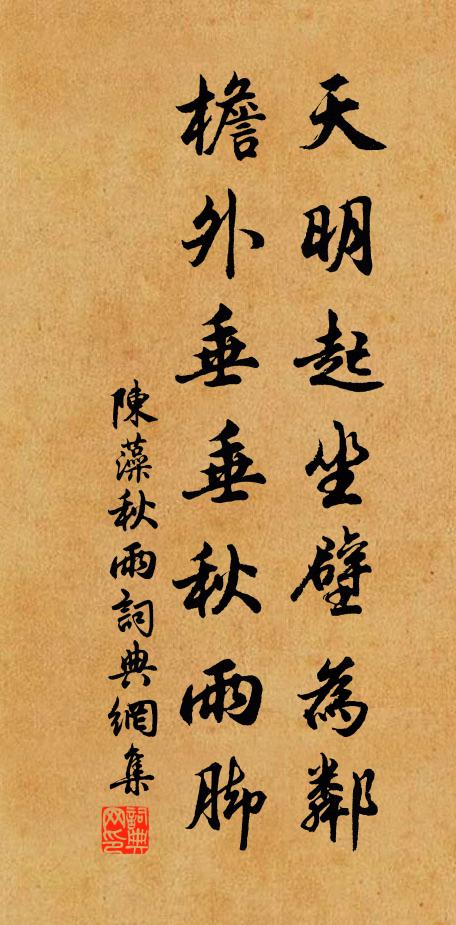 天明起坐壁為鄰
檐外垂垂秋雨脚
陳藻秋雨詞典網集
詞典網印